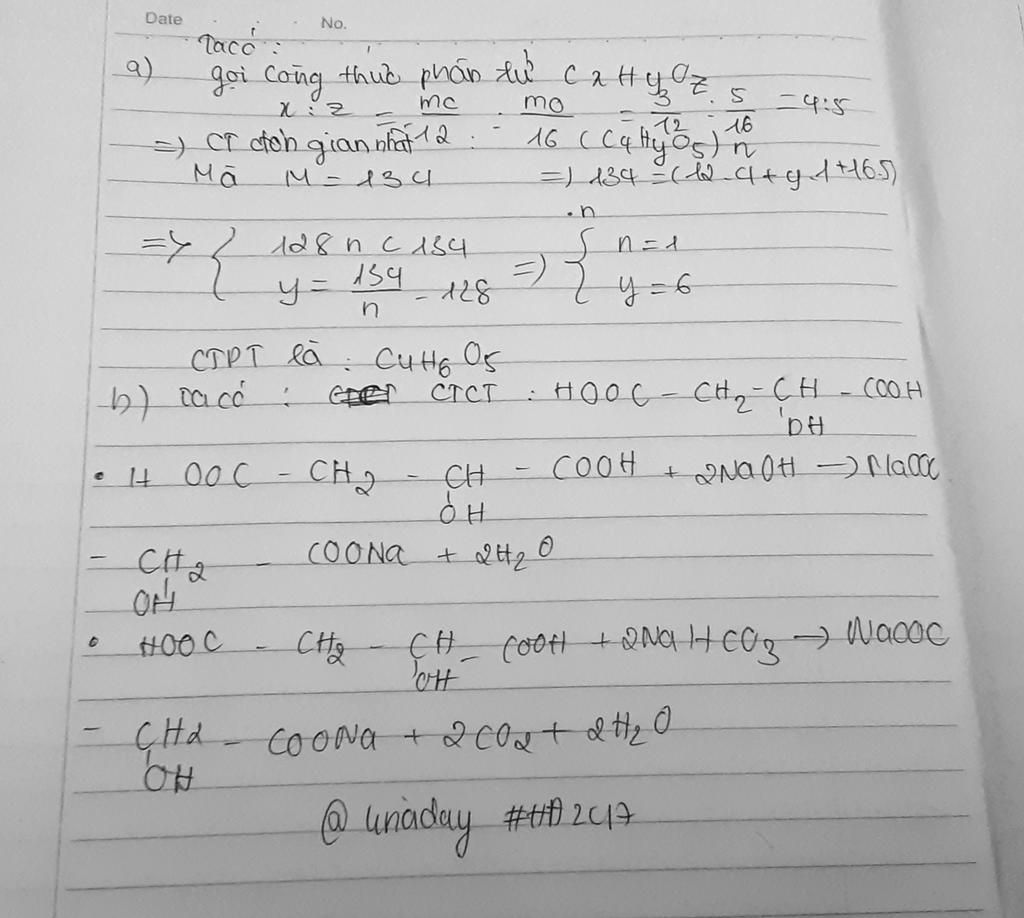 Date No.
Ta có :
a) gọi công thức phân tử CxHyOz
x : z = mC/12 : mO/16 = 3/12 : 5/16 = 4:5
=) CT đơn giản nhất (C4HyO5)n
Mà M = 134 =) 134 = (12.4 + y.1 + 16.5)
.n
=> { 128n < 134 =) { n = 1
y = 134/n - 128 y = 6
CTPT là : C4H6O5
b) Ta có : CTCT : HOOC - CH2 - CH - COOH
OH
• HOOC - CH2 - CH - COOH + 2NaOH → NaOOC
OH
- CH2 - COONa + 2H2O
OH
• HOOC - CH2 - CH - COOH + 2NaHCO3 → NaOOC
OH
- CH2 - COONa + 2CO2 + 2H2O
OH